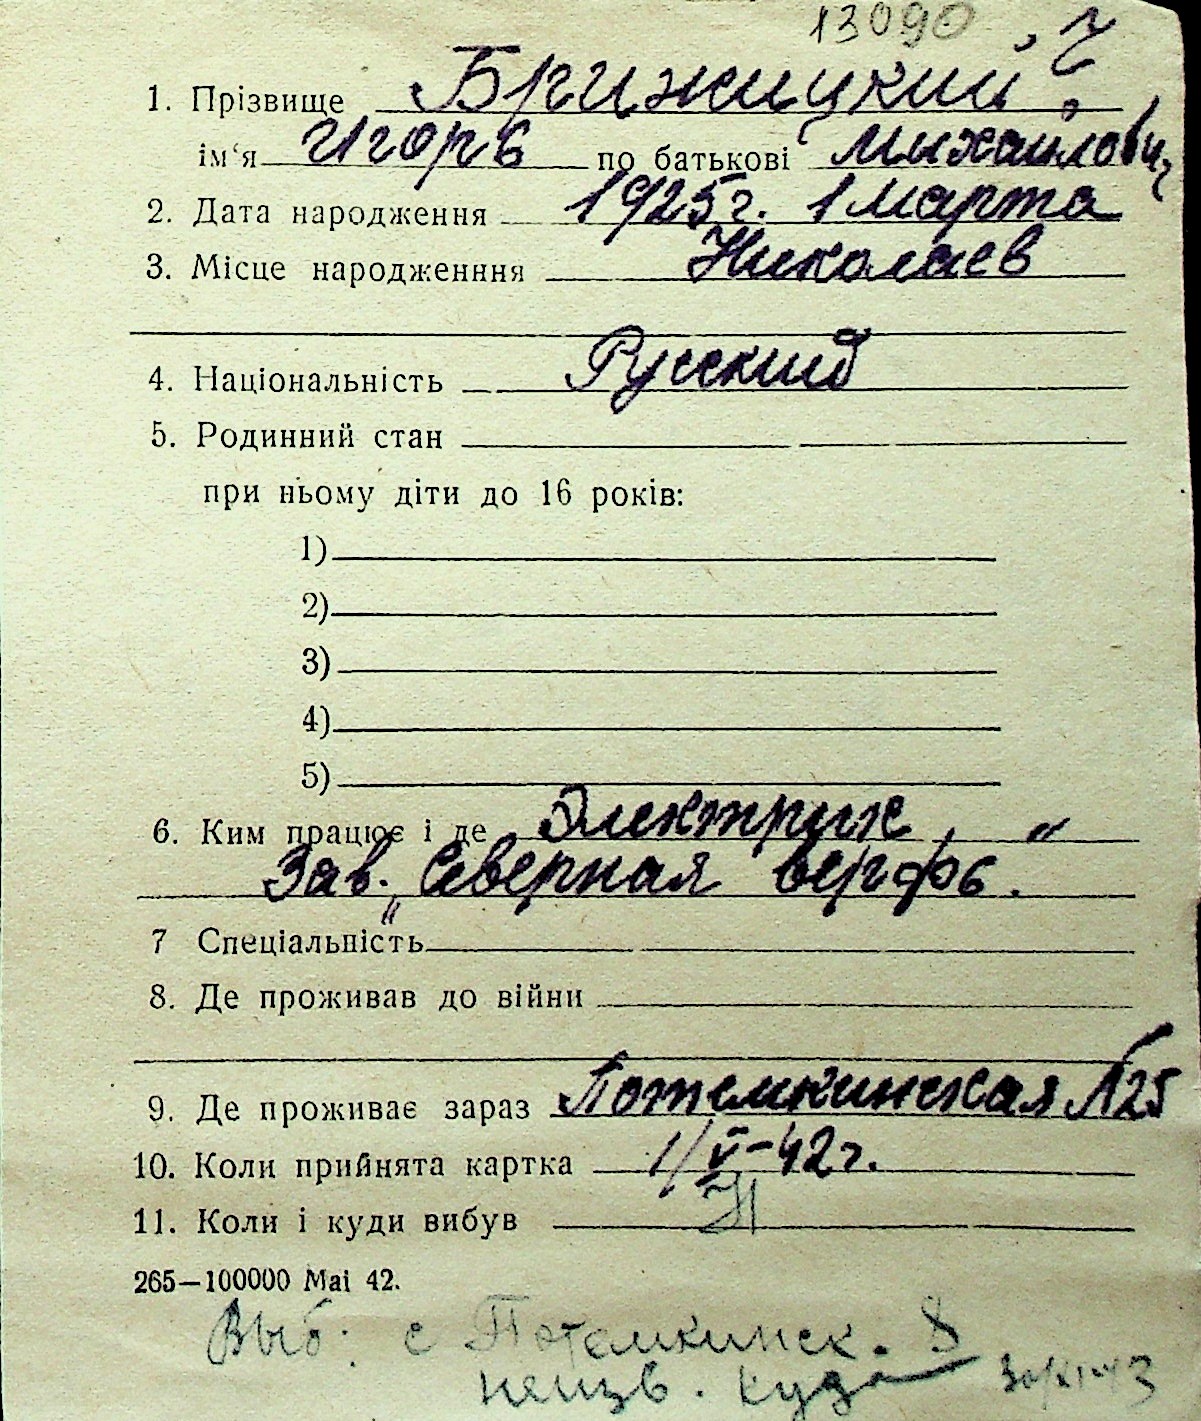 13090
?
1. Прізвище Брижицкий
ім'я Игорь по батькові Михайлович
2. Дата народження 1925 г. 1 Марта
3. Місце народженння Николаев
4. Національність Русский
5. Родинний стан
при ньому діти до 16 років:
1)
2)
3)
4)
5)
6. Ким працює і де Электрик,
Зав. „Северная верфь“.
7 Спеціальність
8. Де проживав до війни
9. Де проживає зараз Потемкинская №25
10. Коли прийнята картка 1/V-42 г.
11. Коли і куди вибув
265—100000 Mai 42.
Выб. с Потемкинск. 8
неизв. куда 30/XI-43